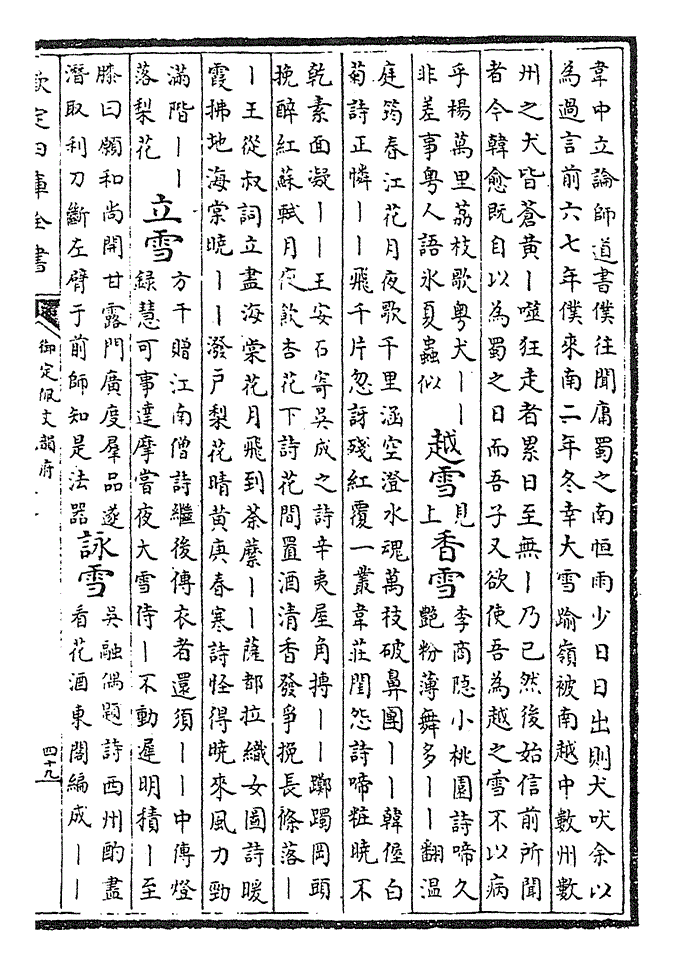 韋中立論師道書僕往聞庸蜀之南恒雨少日日出則犬吠余以
為過言前六七年僕來南二年冬幸大雪踰嶺被南越中數州數
州之犬皆蒼黄丨噬狂走者累日至無丨乃已然後始信前所聞
者今韓愈既自以為蜀之日而吾子又欲使吾為越之雪不以病
乎楊萬里荔枝歌粤犬丨丨
非差事粤人語氷夏蟲似
越雪
見
上
香雪
李商隐小桃園詩啼久
艷粉薄舞多丨丨翻温
庭筠春江花月夜歌千里涵空澄水魂萬枝破鼻團丨丨韓偓白
菊詩正憐丨丨飛千片忽訝殘紅覆一叢韋莊閨怨詩啼粧曉不
乾素面凝丨丨王安石寄吳成之詩辛夷屋角摶丨丨躑躅岡頭
挽醉紅蘇軾月夜飲杏花下詩花間置酒清香發爭挽長條落丨
丨王從叔詞立盡海棠花月飛到荼蘼丨丨薩都拉織女圖詩暖
霞拂地海棠曉丨丨潑戸梨花晴黄庚春寒詩怪得曉來風力勁
滿階丨丨
落梨花
立雪
方干贈江南僧詩繼後傳衣者還須丨丨中傳燈
録慧可事達摩嘗夜大雪侍丨不動遲明積丨至
膝曰願和尚開甘露門廣度羣品遂
潛取利刀斷左臂于前師知是法器
詠雪
吳融偶題詩西州酌盡
看花酒東閣編成丨丨
欽定四庫全書
御定佩文韻府
四十九